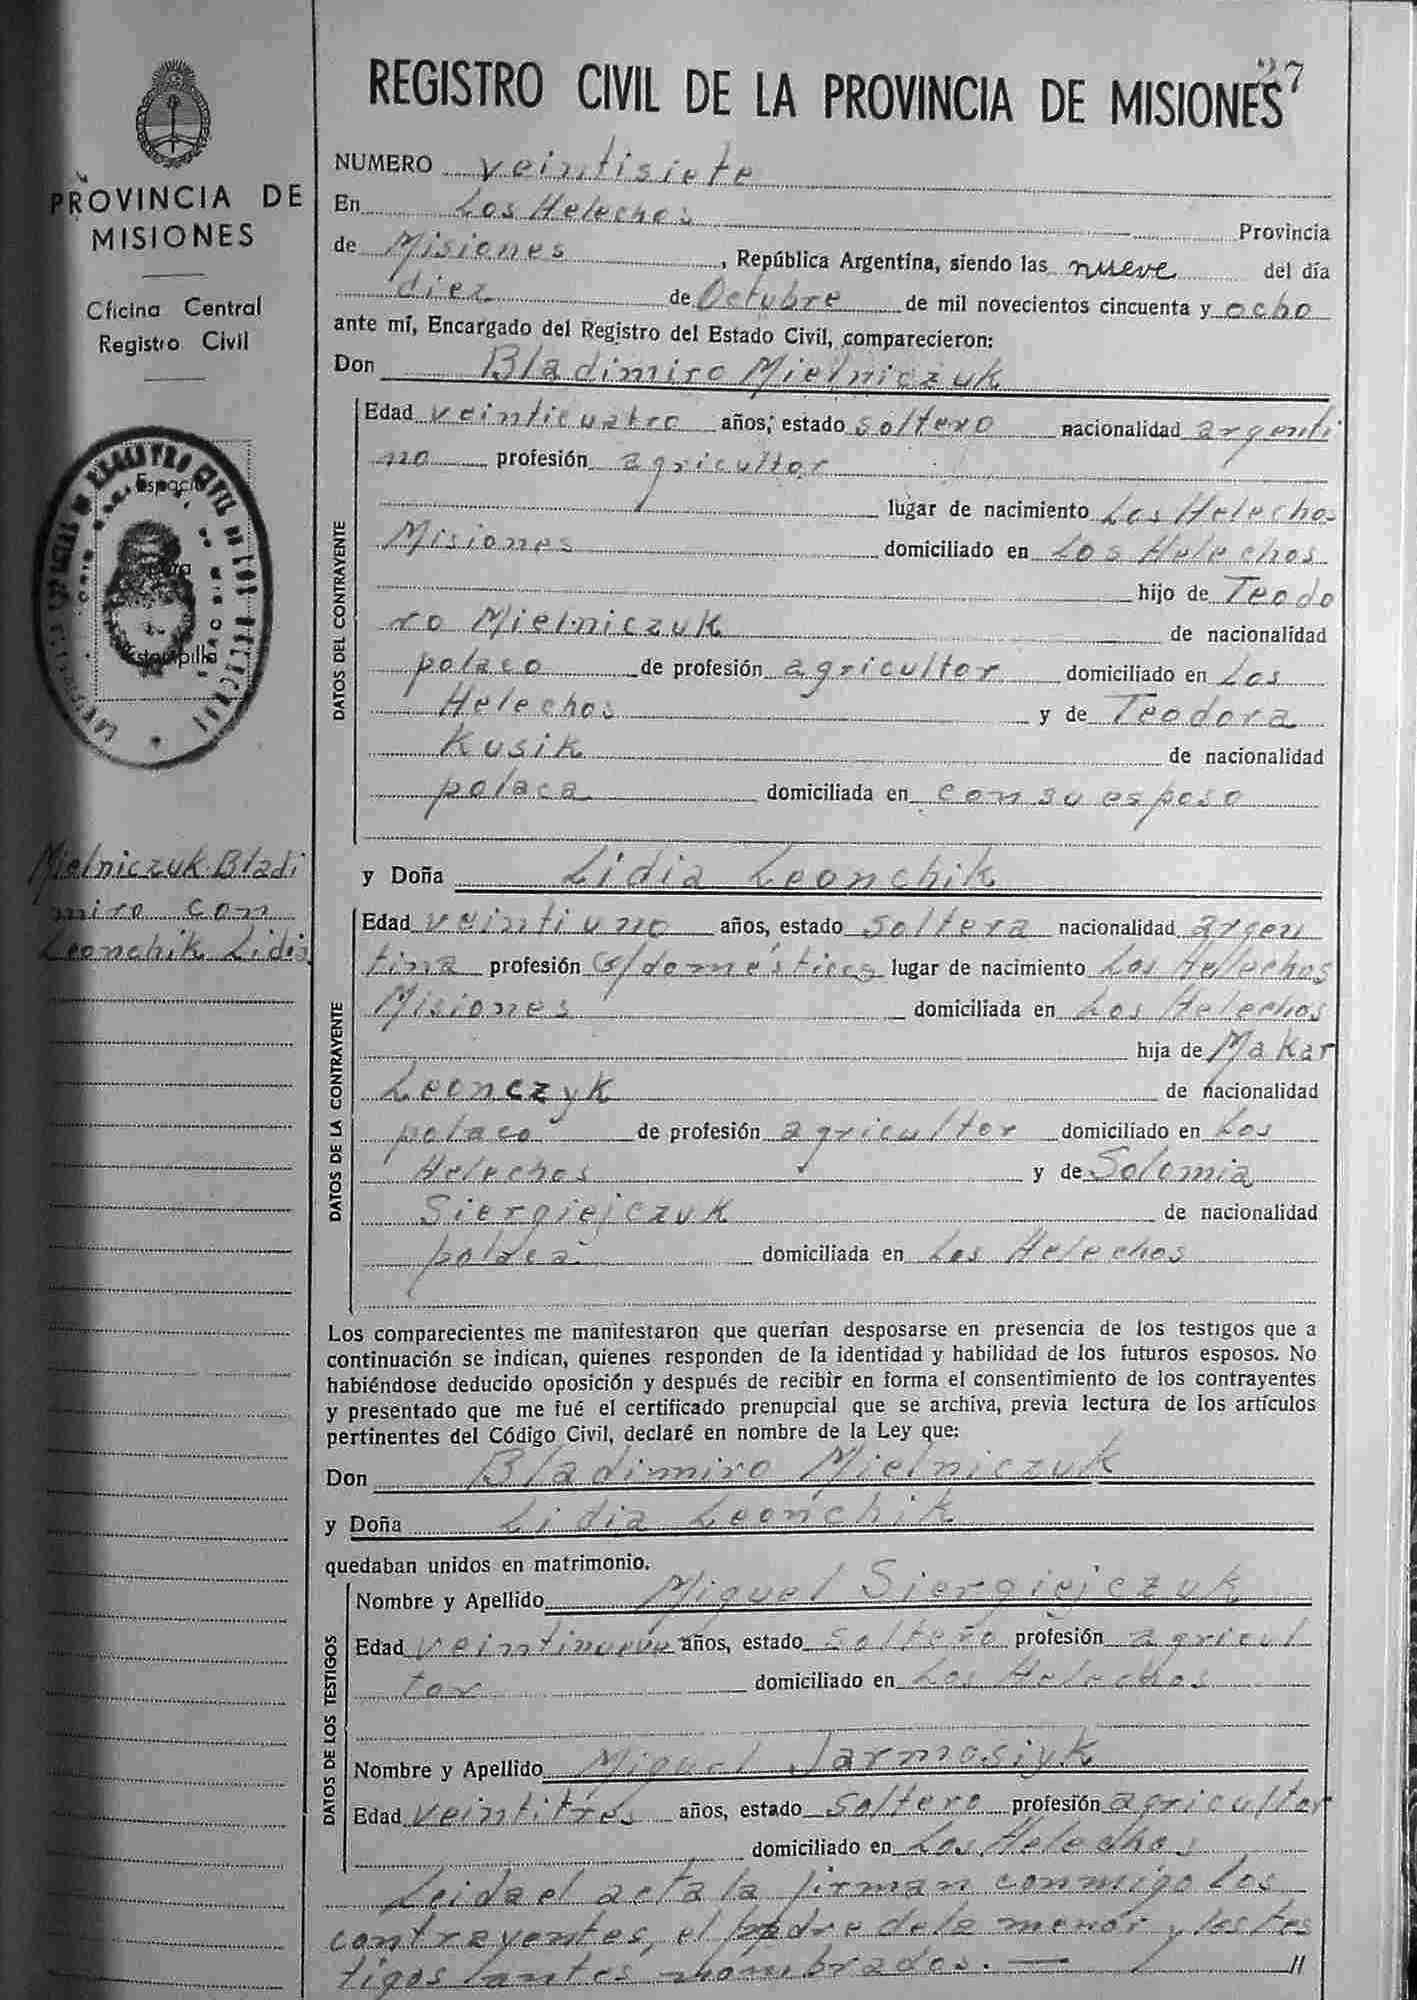 27
REGISTRO CIVIL DE LA PROVINCIA DE MISIONES
PROVINCIA DE
MISIONES
Oficina Central
Registro Civil
Espacio
para
Estampilla
Mielniczuk Bladi
miro con
Leonchik Lidia
NUMERO veintisiete
En Los Helechos Provincia
de Misiones, República Argentina, siendo las nueve del día
diez de Octubre de mil novecientos cincuenta y ocho
ante mí, Encargado del Registro del Estado Civil, comparecieron:
Don Bladimiro Mielniczuk
DATOS DEL CONTRAYENTE
Edad veinticuatro años; estado soltero nacionalidad argenti
no profesión agricultor
lugar de nacimiento Los Helechos
Misiones domiciliado en Los Helechos
hijo de Teodo
ro Mielniczuk de nacionalidad
polaco de profesión agricultor domiciliado en Los
Helechos y de Teodora
Kusik de nacionalidad
polaca domiciliada en con su esposo
y Doña Lidia Leonchik
DATOS DE LA CONTRAYENTE
Edad veintiuno años, estado soltera nacionalidad argen
tina profesión q/domésticos lugar de nacimiento Los Helechos
Misiones domiciliada en Los Helechos
hija de Makar
Leonczyk de nacionalidad
polaco de profesión agricultor domiciliado en Los
Helechos y de Solomia
Siergiejczuk de nacionalidad
polaca domiciliada en Los Helechos
Los comparecientes me manifestaron que querían desposarse en presencia de los testigos que a
continuación se indican, quienes responden de la identidad y habilidad de los futuros esposos. No
habiéndose deducido oposición y después de recibir en forma el consentimiento de los contrayentes
y presentado que me fué el certificado prenupcial que se archiva, previa lectura de los artículos
pertinentes del Código Civil, declaré en nombre de la Ley que:
Don Bladimiro Mielniczuk
y Doña Lidia Leonchik
quedaban unidos en matrimonio.
DATOS DE LOS TESTIGOS
Nombre y Apellido Miguel Siergiejczuk
Edad veintinueve años, estado soltero profesión agricul
tor domiciliado en Los Helechos
Nombre y Apellido Miguel Jarmosiyk
Edad veintitrés años, estado soltero profesión agricultor
domiciliado en Los Helechos
Leida el acta la firman conmigo los
contrayentes, el padre de la menor y los tes
tigos antes nombrados. —